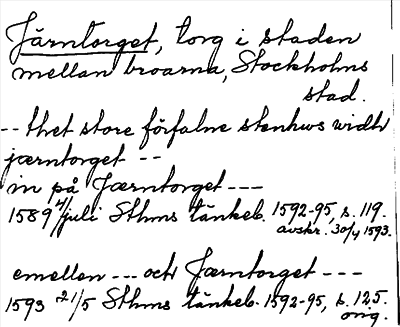 Järntorget, torg i staden
mellan broarna, Stockholms
stad.
-- thet store förfalne stenhws widh
jærntorget --
in på Jærntorget ---
1589 4/juli Sthms tänkeb. 1592-95, s. 119.
avskr. 30/4 1593.
emellan --- och Jærntorget ---
1593 21/5 Sthms tänkeb. 1592-95, s. 125.
orig.